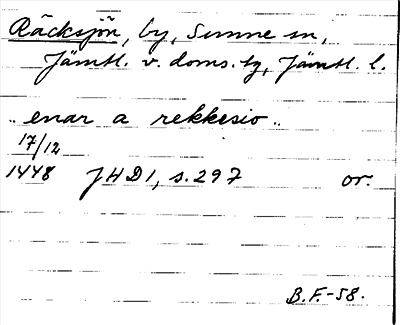 Räcksjön, by, Sunne sn,
Jämtl. v. doms. lg, Jämtl. l.
„ enar a rekkesio „
17/12
1448 JHD1, s. 297 or.
B.F.-58.